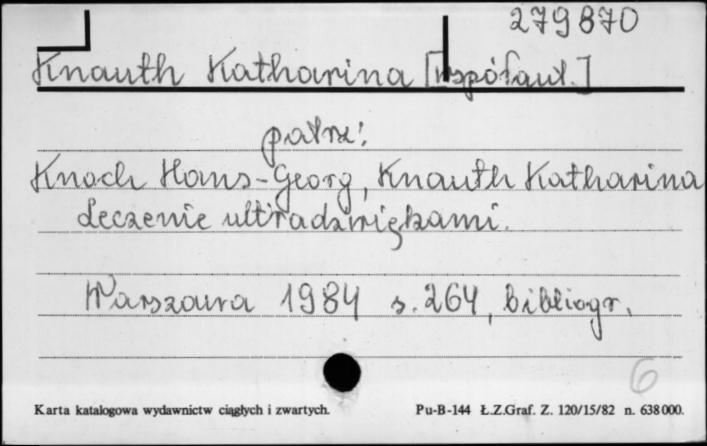 279870
Knauth Katharina [współaut.]
patrz:
Knoch Hans-Georg, Knauth Katharina
Leczenie ultradźwiękami.
Warszawa 1984 s. 264, bibliogr.
6
Karta katalogowa wydawnictw ciągłych i zwartych. Pu-B-144 Ł.Z.Graf. Z. 120/15/82 n. 638000.